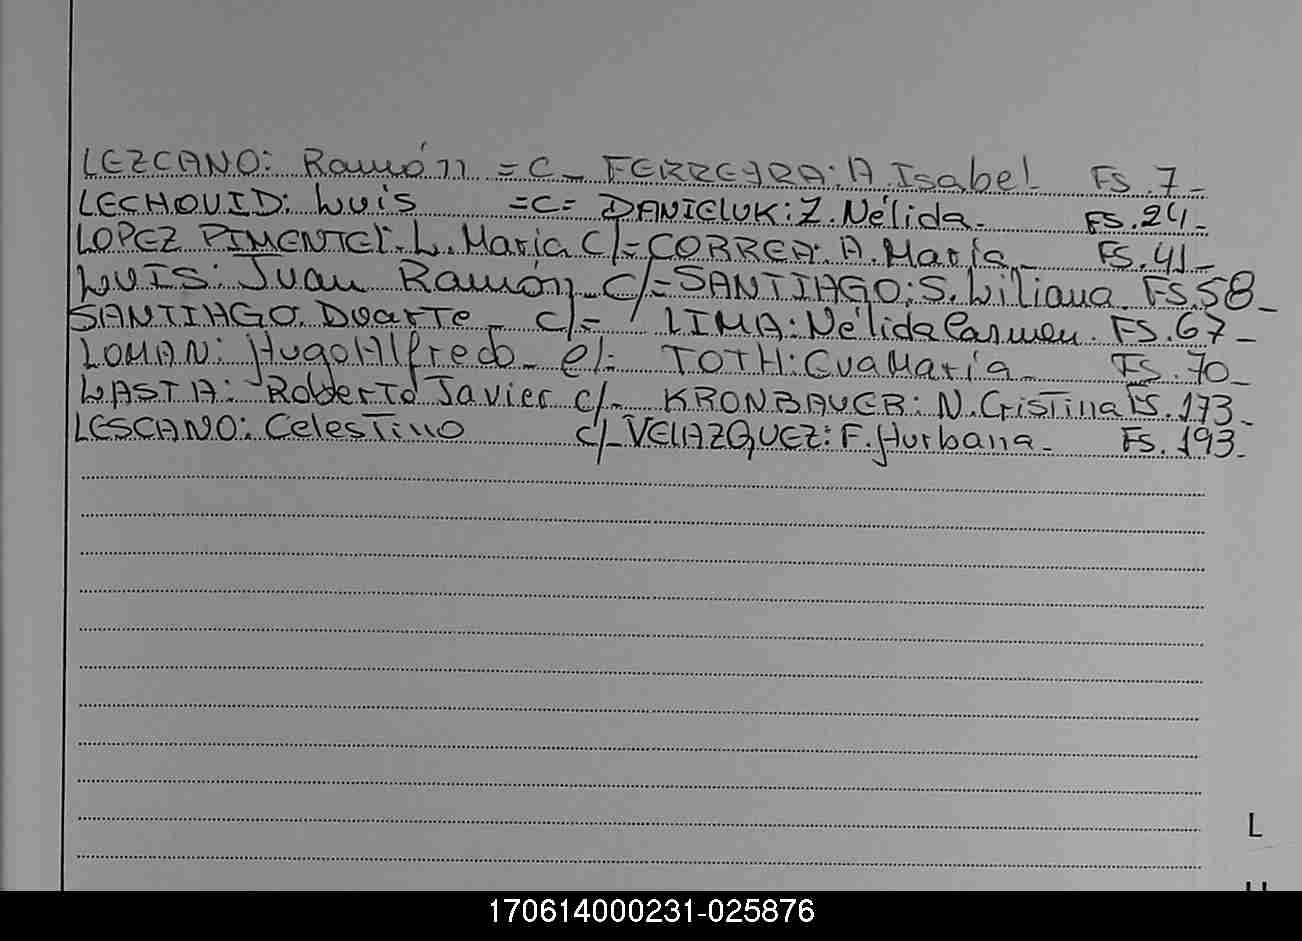 LEZCANO: Ramón =C_ FERREYRA: A. Isabel. FS. 7_
LECHOUID: Luis =C= DANIELUK: Z. Nélida_ FS. 24_
LOPEZ PIMENTEL: L. María C/= CORREA: A. María_ FS. 41_
LUIS: Juan Ramón_ C/= SANTIAGO: S. Liliana FS. 58_
SANTIAGO. Duarte_ C/= LIMA: Nélida Carmen. FS. 67_
LOMAN: Hugo Alfredo_ C/= TOTH: Eva María_ FS. 70_
LASTA: Roberto Javier C/_ KRONBAUER: N. Cristina FS. 173_
LESCANO: Celestino C/_ VELAZQUEZ: F. Hurbana_ FS. 193_
L
170614000231-025876